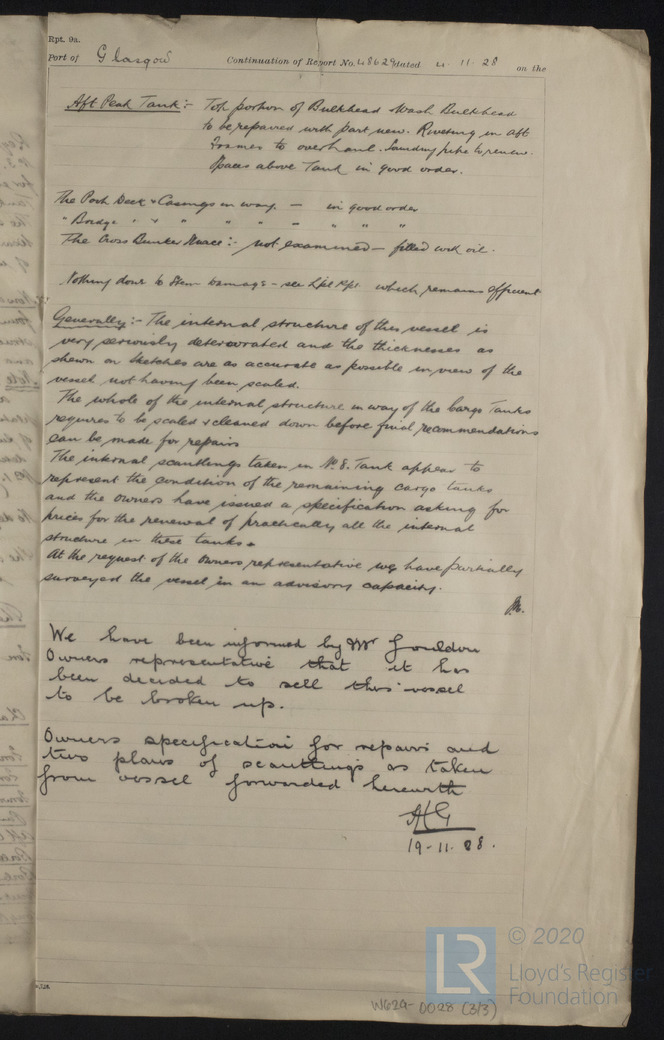 Rpt. 9a.
Port of Glasgow Continuation of Report No. 48629 dated 11 · 28 on the
Aft Peak Tank:- Top portion of Bulkhead & Wash Bulkhead
to be repaired with part new. Riveting in aft
Frames to overhaul. Sounding pipe to renew.
Spaces above Tank in good order.
The Poop Deck & Casings in way - in good order
" Bridge " " " " " " " "
The Cross Bunker :- not examined - filled with oil.
Nothing done to Stem Damage - see which remains efficient
Generally:- The internal structure of this vessel is
very seriously deteriorated and the thicknesses as
shewn on sketches are as accurate as possible in view of the
vessel not having been scaled.
The whole of the internal structure in way of the Cargo Tanks
requires to be scaled & cleaned down before final recommendations
can be made for repairs
The internal scantlings taken in No. 8. Tank appear to
represent the condition of the remaining cargo tanks
and the owners have issued a specification asking for
prices for the renewal of practically all the internal
structure in these tanks.
At the request of the Owners representative we have partially
surveyed the vessel in an advisory capacity.
We have been informed by Mr Gouldon
Owners representative that it has
been decided to sell this vessel
to be broken up.
Owners specification for repairs and
two plans of scantlings as taken
from vessel forwarded herewith
19-11-28.
LR
© 2020
Lloyd's Register
Foundation
W629-0028 (3/3)